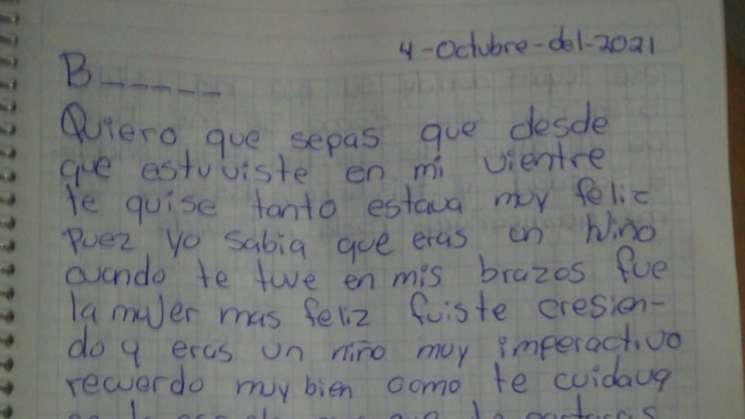 4-Octubre-del-2021
B_____
Quiero que sepas que desde
que estuviste en mi vientre
te quise tanto estava muy feliz
puez yo sabia que eras un Niño
cuando te tuve en mis brazos fue
la mujer mas feliz fuiste cresien-
do y eras un niño muy imperactivo
recuerdo muy bien como te cuidava